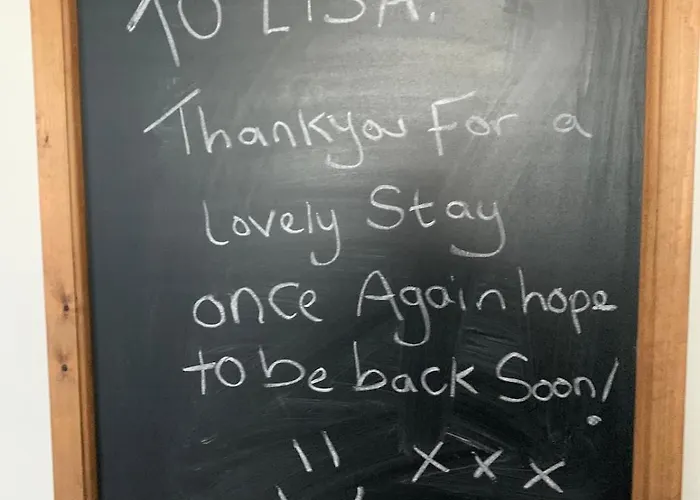 TO LISA.
Thankyou For a
lovely Stay
once Again hope
to be back Soon!
x x x